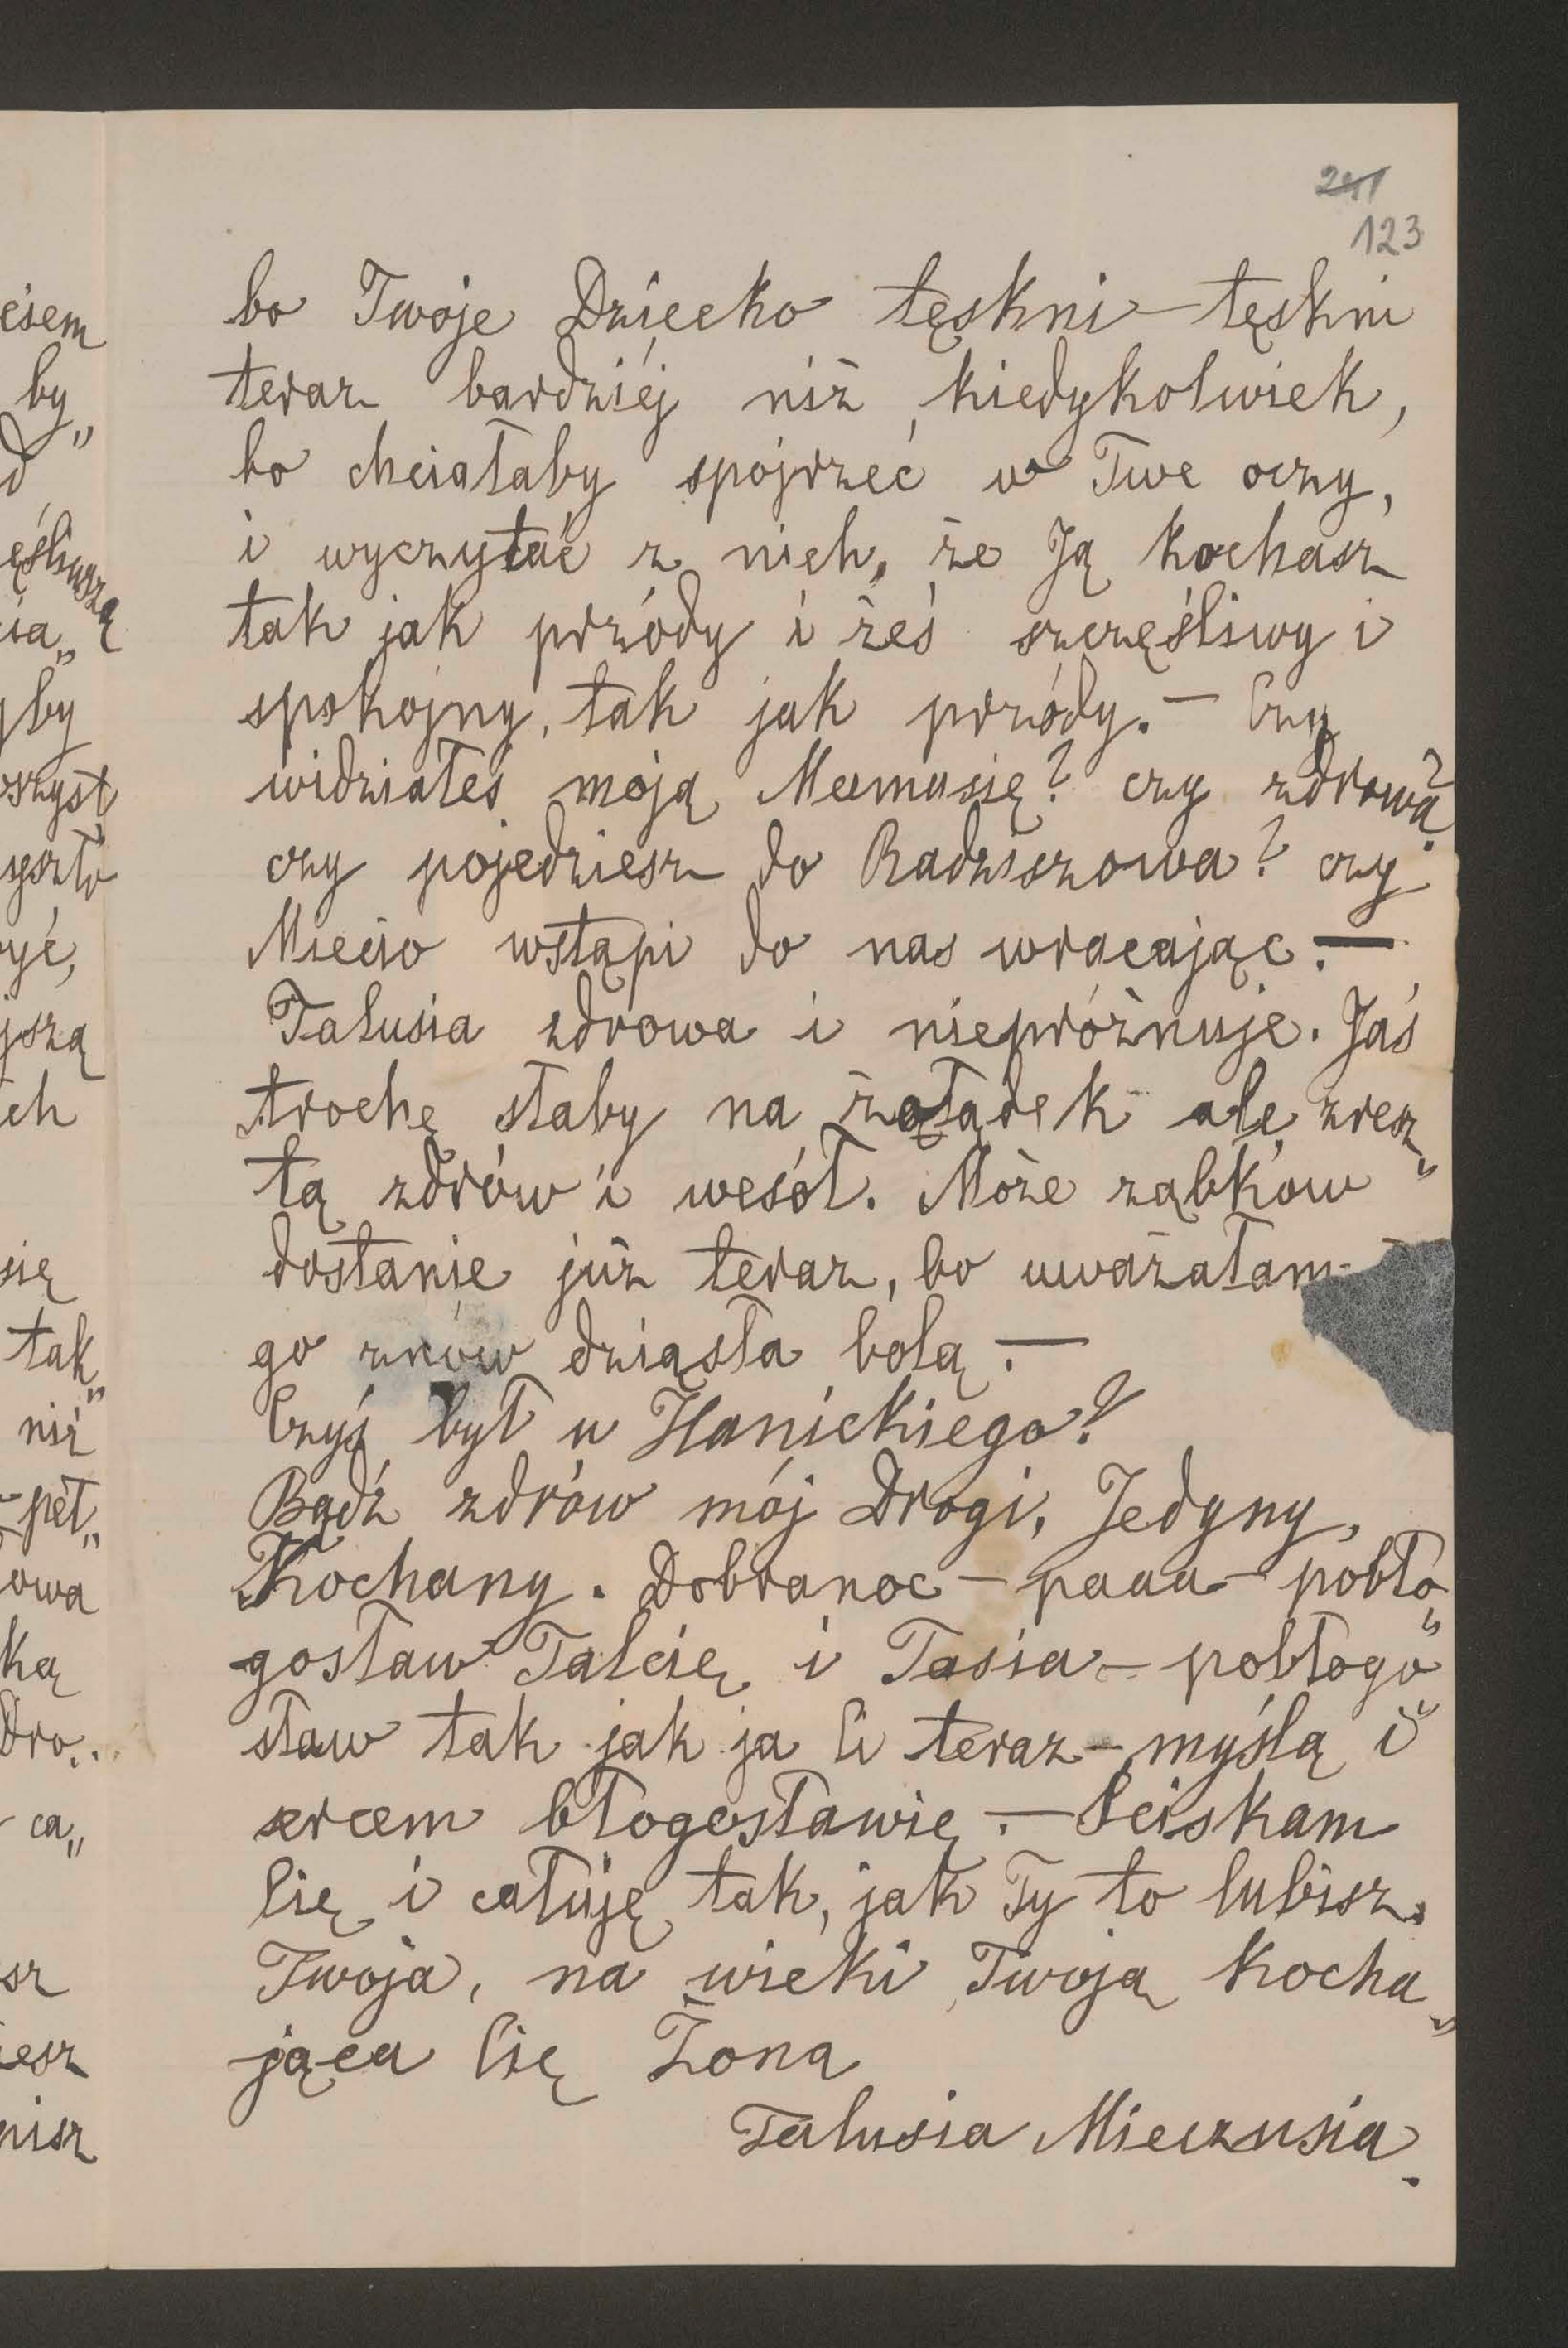 241
123
bo Twoje Dziecko tęskni – tęskni
teraz bardziéj niż kiedykolwiek,
bo chciałaby spojrzeć w Twe oczy,
i wyczytać z nich, że Ją kochasz
tak jak przódy i żeś szczęśliwy i
spokojny, tak jak przódy. – Czy
widziałeś moją Mamusię? czy zdrowa?
czy pojedziesz do Radziszowa? czy
Miecio wstąpi do nas wracając. –
Talusia zdrowa i niepróżnuje. Jaś
trochę słaby na żołądek ale zresz„
tą zdrów i wesół. Może ząbków
dostanie już teraz, bo uważałam
go znów dziąsła bolą. –
Czyś był u Hanickiego?
Bądź zdrów mój Drogi, Jedyny,
Kochany. Dobranoc – paaa – pobło„
gosław Talcię i Tasia – pobłogo„
sław tak jak ja Ci teraz – myślą i
sercem błogosławię. – Ściskam
Cię i całuję tak, jak Ty to lubisz.
Twoja, na wieki Twoją kocha„
jąca Cię Żoną
Talusia Mieczusia.
esem
by„
d
ęśliwszą
sia„
yby
wszyst
yszło
yć,
jszą
ch
się
tak„
niż
pet„
owa
ką
Dro..
ca„
sz
iesz
nisz